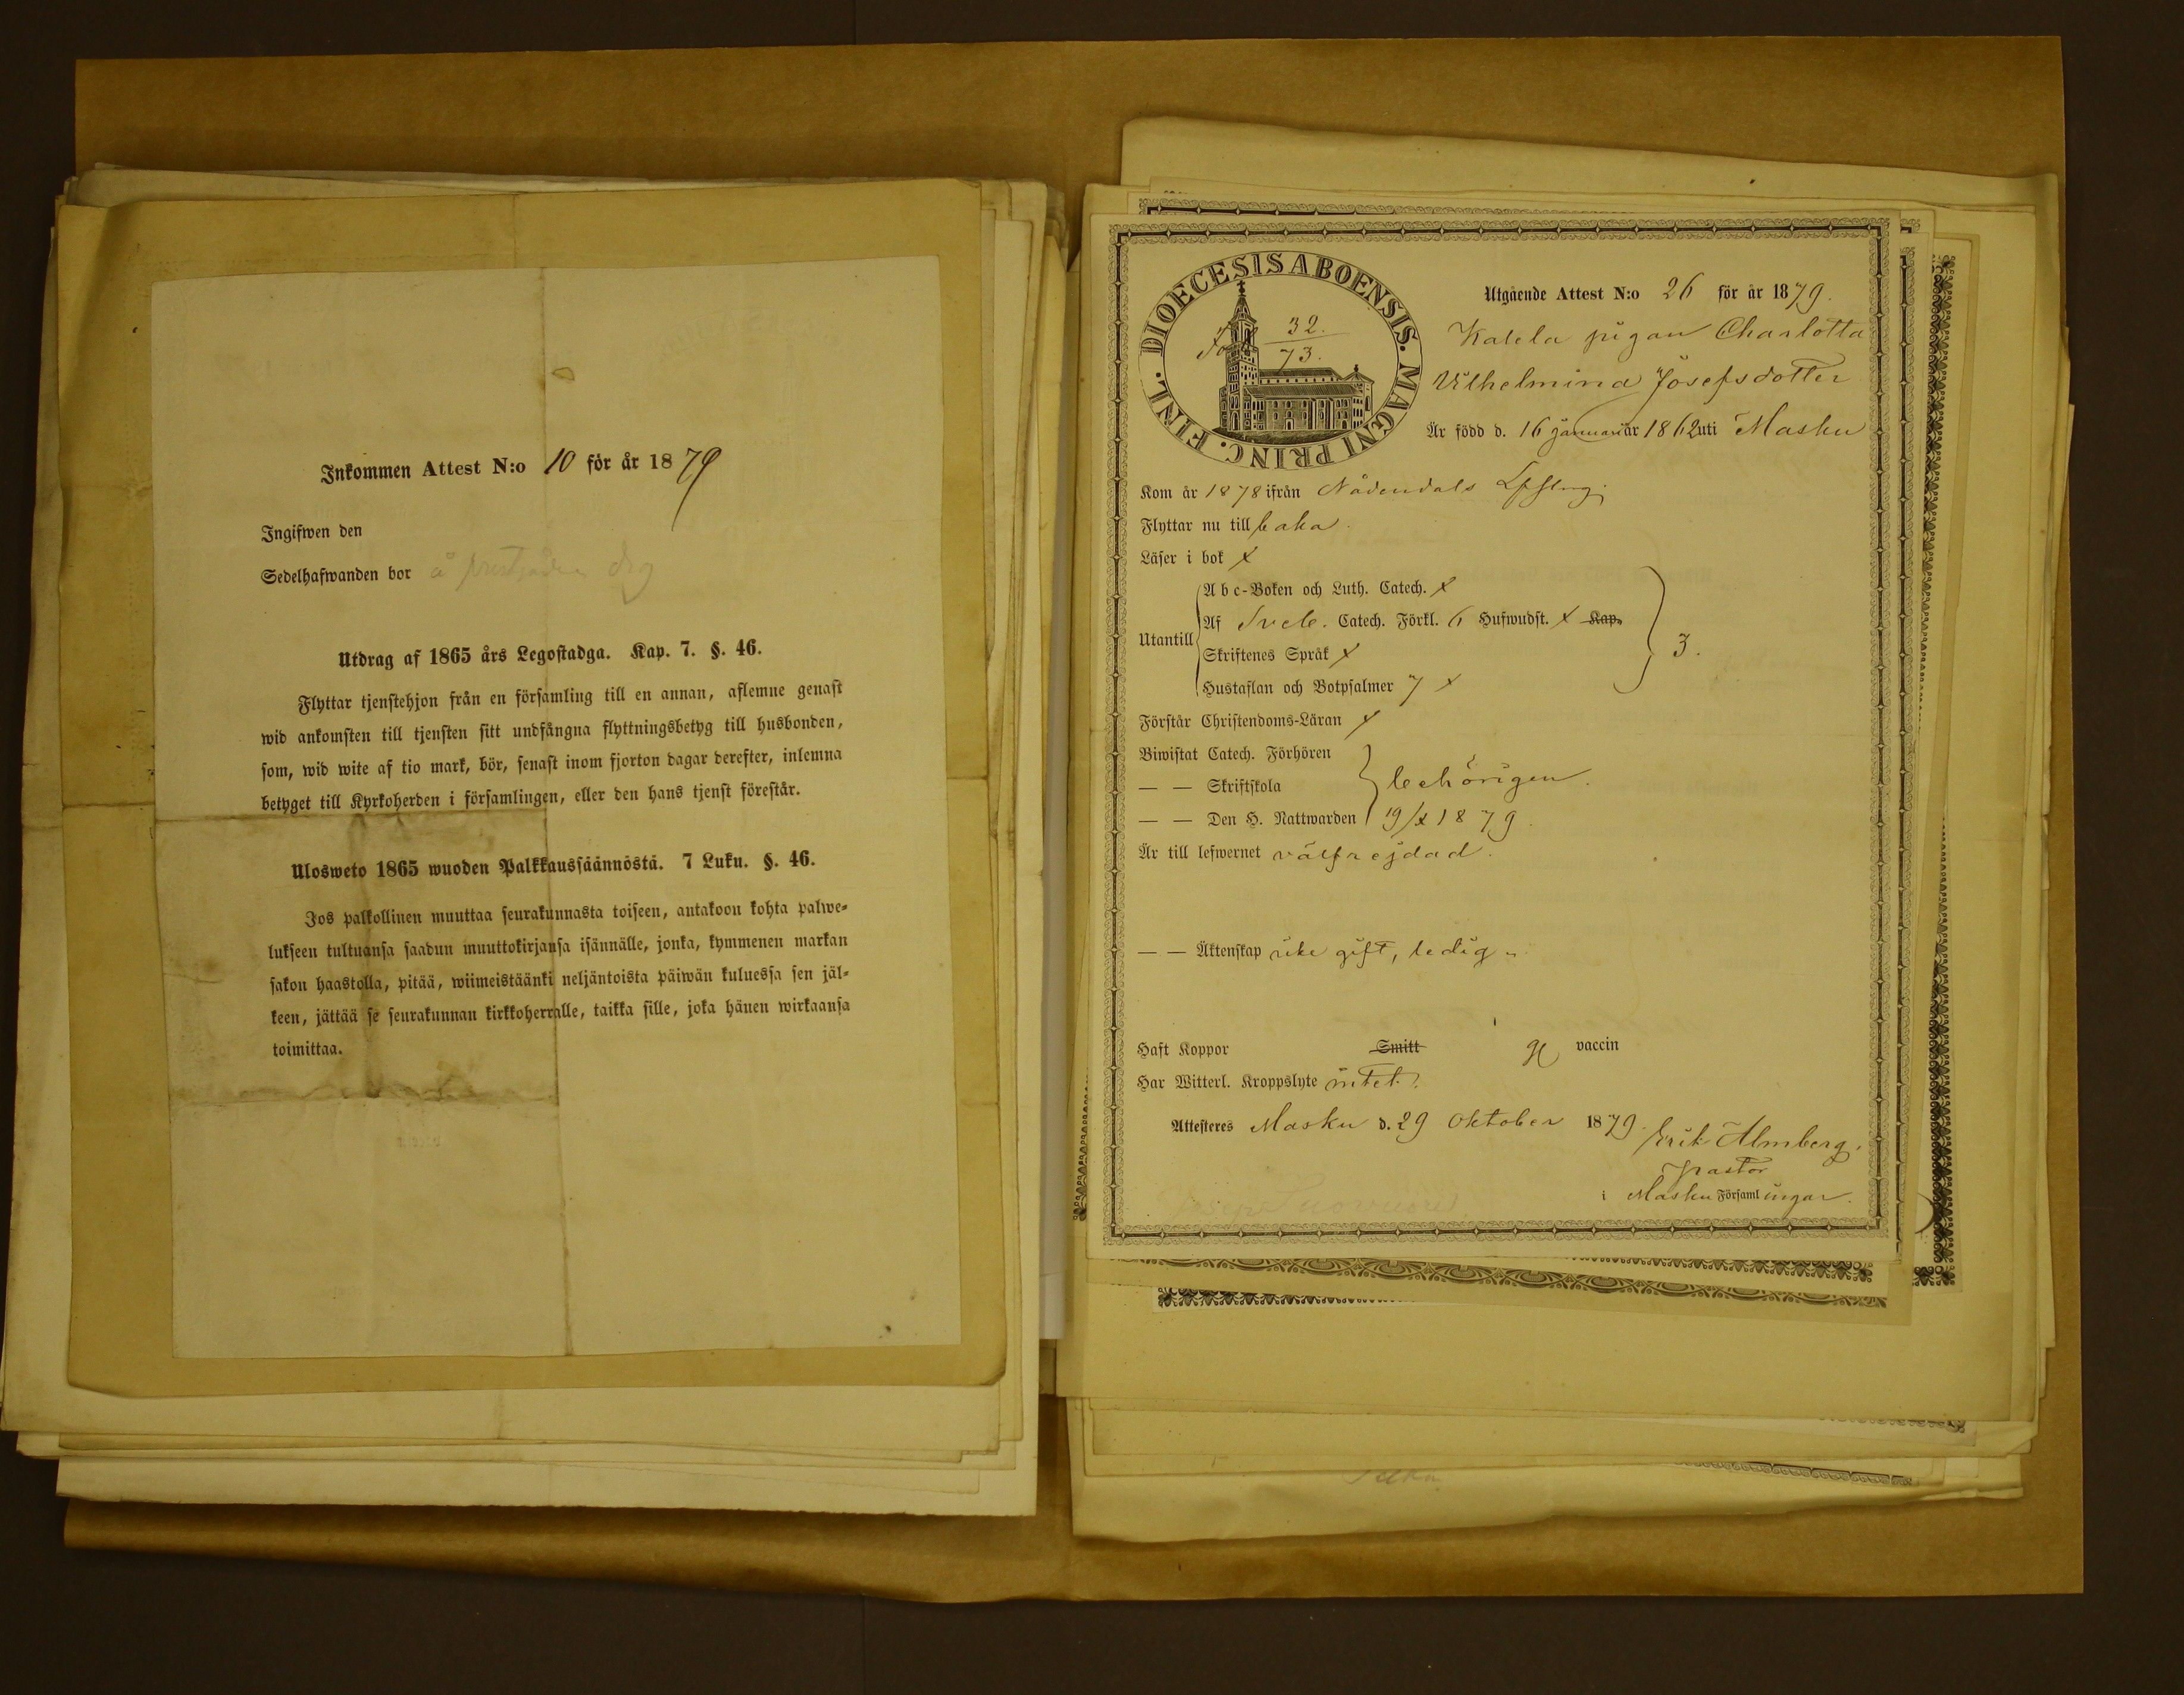 Inkommen Attest N:o 10 för år 1879
Ingifwen den
Sedelhafwanden bor å
Utdrag af 1865 års Legostadga. Kap. 7. §. 46.
Flyttar tjenstehjon från en församling till en annan, aflemne genast
wid ankomsten till tjensten sitt undfångna flyttningsbetyg till husbonden,
som, wid wite af tio mark, bör, senast inom fjorton dagar derefter, inlemna
betyget till Kyrkoherden i församlingen, eller den hans tjenst förestår.
Ulosweto 1865 wuoden Palkkaussäännöstä. 7 Luku. §. 46.
Jos palkollinen muuttaa seurakunnasta toiseen, antakoon kohta palwe-
lukseen tultuansa saadun muuttokirjansa isännälle, jonka, kymmenen markan
sakon haastolla, pitää, wiimeistäänki neljäntoista päiwän kuluessa sen jäl-
keen, jättää se seurakunnan kirkkoherralle, taikka sille, joka hänen wirkaansa
toimittaa.
DIOECESIS ABOENSIS. MAGNI PRINC. FINL.
32.
73.
Utgående Attest N:o 26 för år 1879.
Kalela pigan Charlotta
Vilhelmina Josefsdotter
Är född d. 16 januari år 1862 uti Masku
Kom år 1878 ifrån Nådendals
Flyttar nu till baka.
Läser i bok x
Utantill
Abc-Boken och Luth. Catech. x
Af Sveb. Catech. Förkl. 6 Hufwudst. x Kap.
Skriftenes Språk x
Hustaflan och Botpsalmer 7 x
3.
Förstår Christendoms-Läran x
Biwistat Catech. Förhören
— — Skriftskola behörigen.
— — Den H. Nattwarden 19/x 1879.
Är till lefwernet välfrejdad.
— — Äktenskap icke gift, ledig
Haft Koppor Smitt vaccin
Har Witterl. Kroppslyte intet.
Attesteres Masku d. 29 Oktober 1879.
Erik Almberg.
Pastor
i Masku Församlingar.